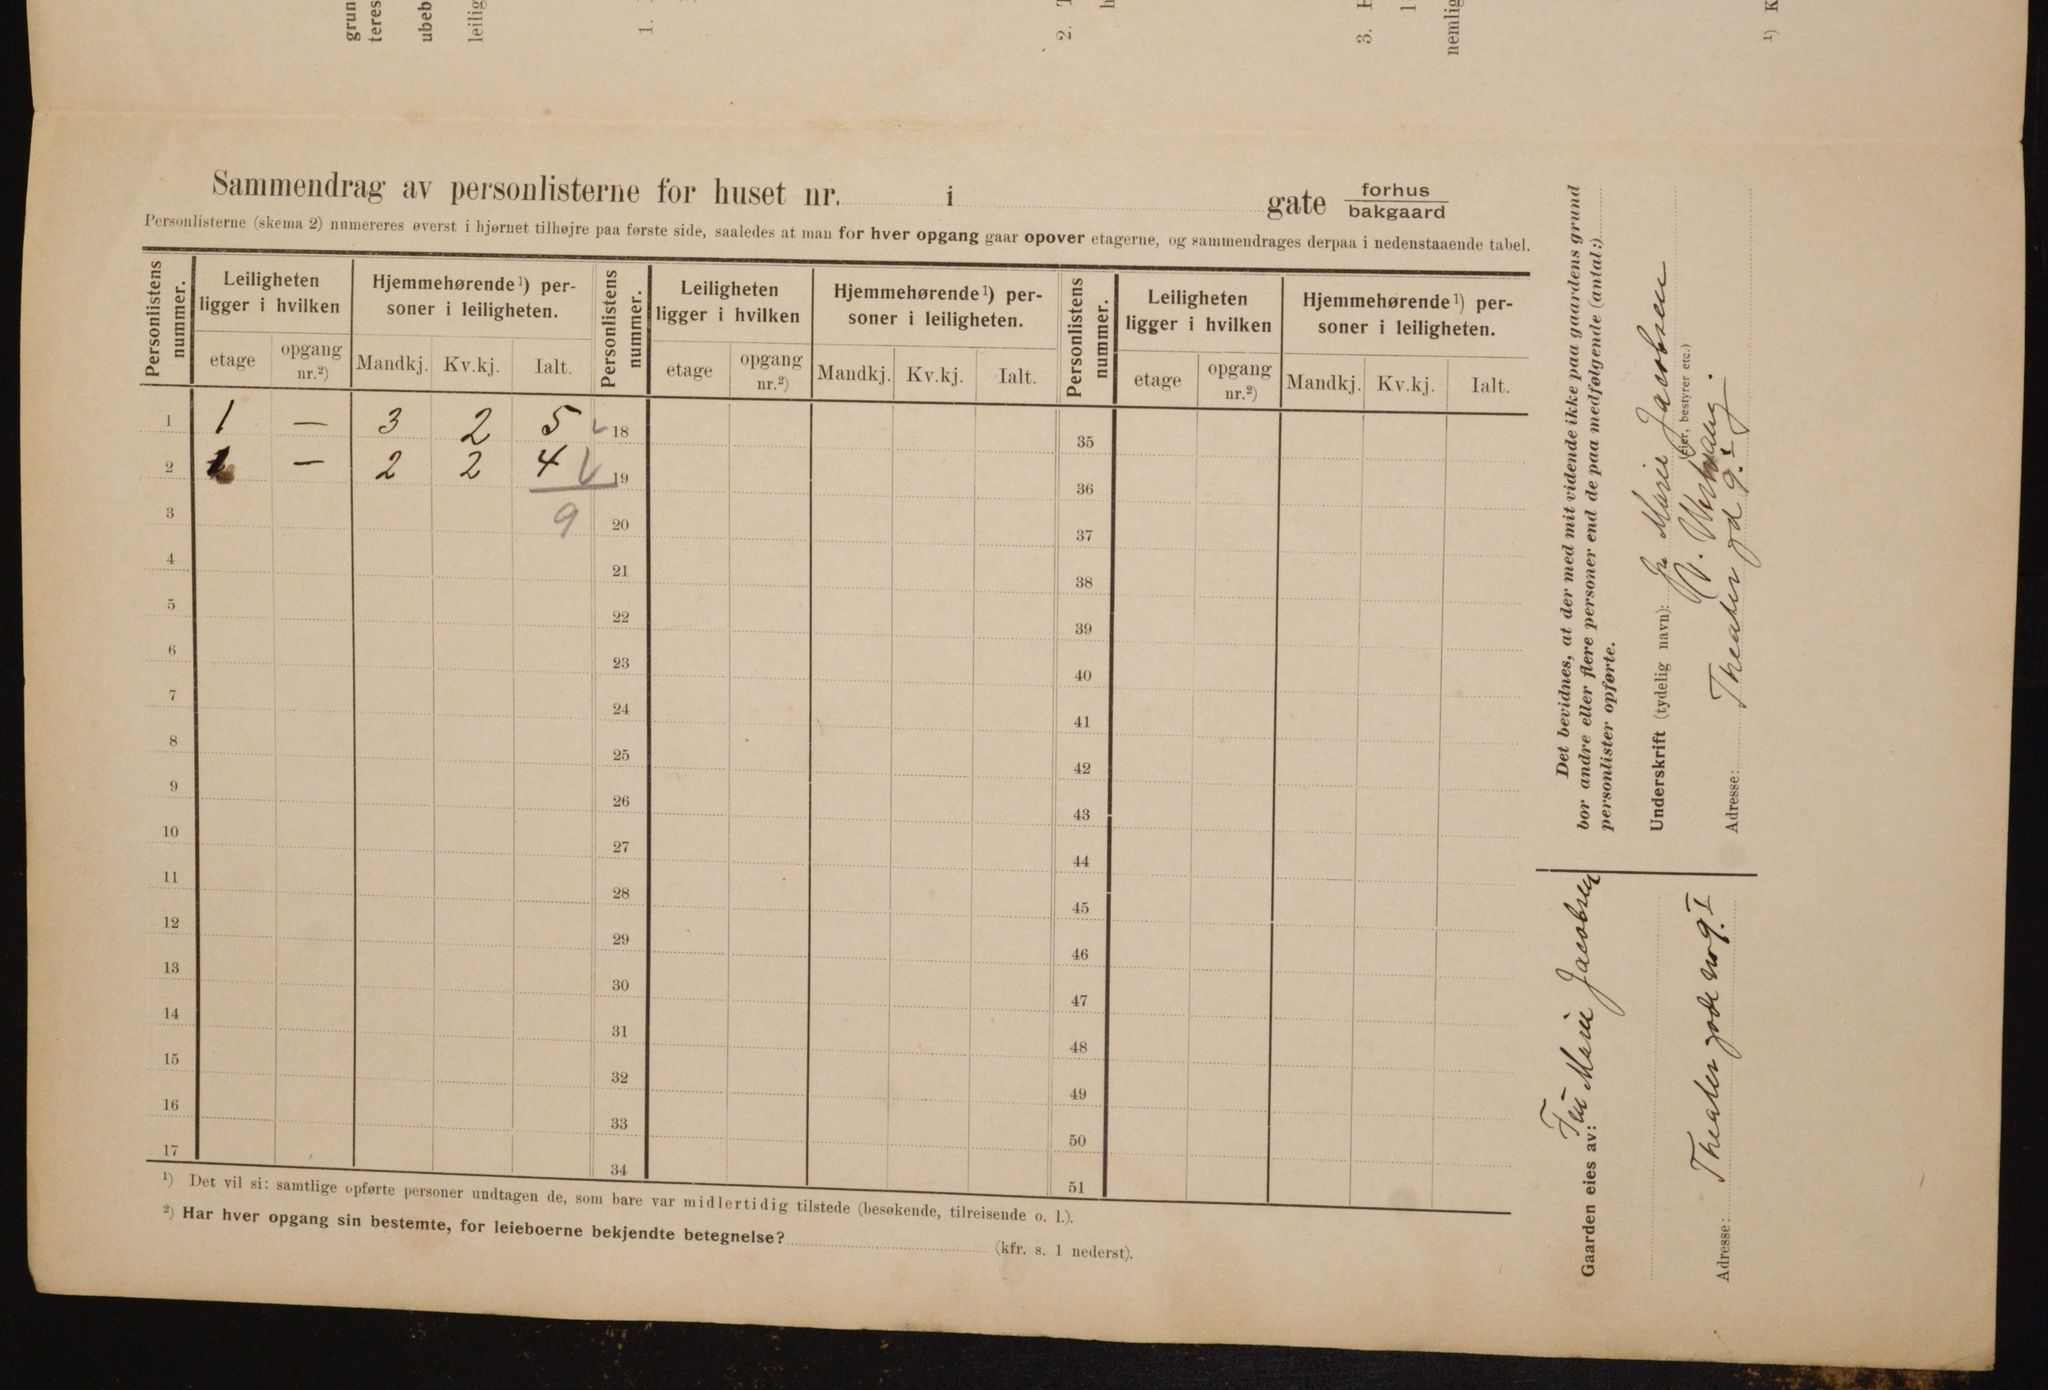 grun
teres
ubeb
leilig
1.
2. T
h
3. H
l
nemlig
¹) K
Sammendrag av personlisterne for huset nr. i gate forhus
bakgaard
Personlisterne (skema 2) numereres øverst i hjørnet tilhøjre paa første side, saaledes at man for hver opgang gaar opover etagerne, og sammendrages derpaa i nedenstaaende tabel.
Personlistens nummer. Leiligheten ligger i hvilken Hjemmehørende¹) personer i leiligheten. Personlistens nummer. Leiligheten ligger i hvilken Hjemmehørende¹) personer i leiligheten. Personlistens nummer. Leiligheten ligger i hvilken Hjemmehørende¹) personer i leiligheten.
etage opgang nr.²) Mandkj. Kv.kj. Ialt. etage opgang nr.²) Mandkj. Kv.kj. Ialt. etage opgang nr.²) Mandkj. Kv.kj. Ialt.
1 1 — 3 2 5 18 35
2 — 2 2 4 19 36
3 9 20 37
4 21 38
5 22 39
6 23 40
7 24 41
8 25 42
9 26 43
10 27 44
11 28 45
12 29 46
13 30 47
14 31 48
15 32 49
16 33 50
17 34 51
¹) Det vil si: samtlige opførte personer undtagen de, som bare var midlertidig tilstede (besøkende, tilreisende o. l.).
²) Har hver opgang sin bestemte, for leieboerne bekjendte betegnelse? (kfr. s. 1 nederst).
Det bevidnes, at der med mit vidende ikke paa gaardens grund
bor andre eller flere personer end de paa medfølgende (antal:)
personlister opførte.
Underskrift (tydelig navn): Fru Marie Jacobsen
(Eier, bestyrer etc.)
Adresse: Theater gd 9. I
Gaarden eies av: Fru Marie Jacobsen
Adresse: Theater gade No 9. I